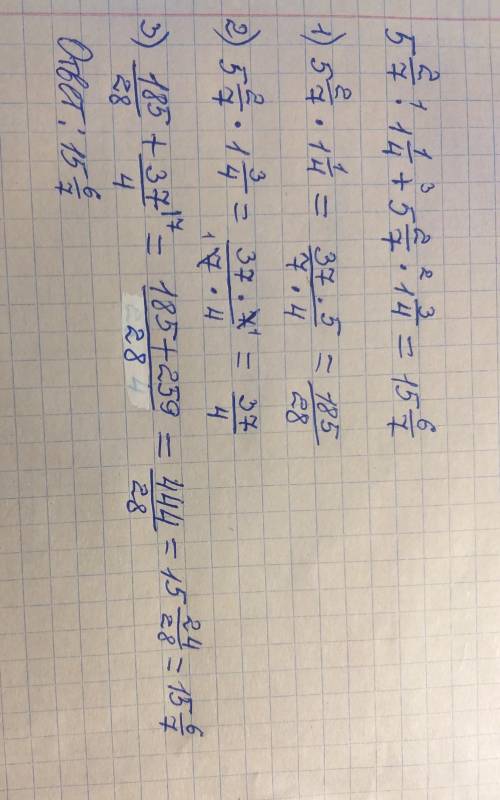 5 2/7 ·¹ 1 1/4 +³ 5 2/7 ·² 1 3/4 = 15 6/7
1) 5 2/7 · 1 1/4 = 37·5/7·4 = 185/28
2) 5 2/7 · 1 3/4 = 37·7¹/¹7·4 = 37/4
3) 185/28 + 37/4 ¹⁷ = 185+259/28 = 444/28 = 15 24/28 = 15 6/7
Ответ: 15 6/7